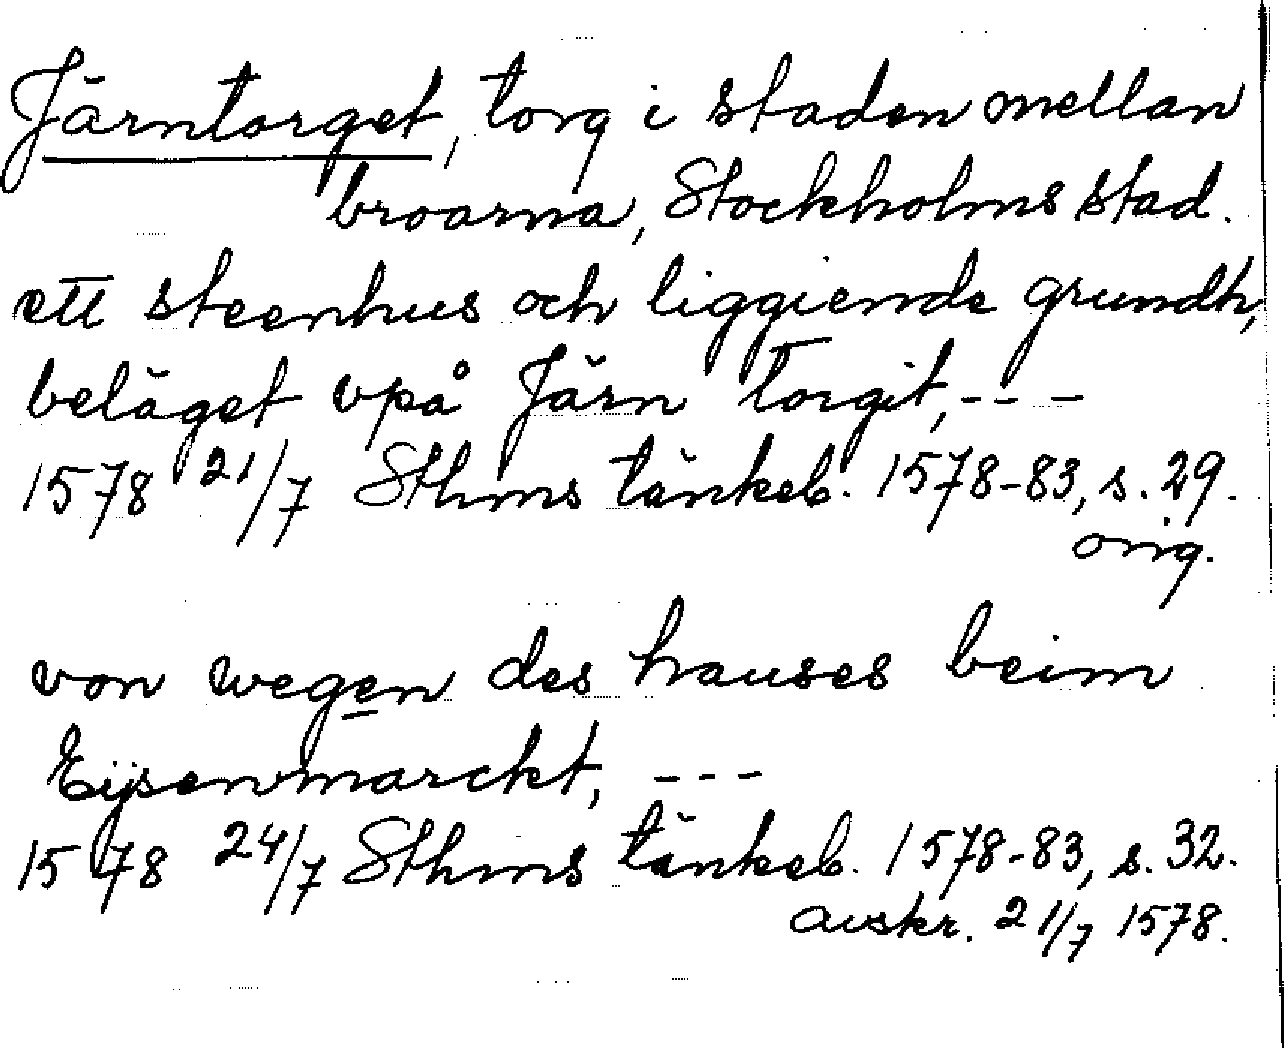 Järntorget, torg i staden mellan
broarna, Stockholms stad.
ett steenhus och liggiende grundh,
beläget vpå Järn Torgit, - - -
1578 21/7 Sthms tänkeb. 1578-83, s. 29.
orig.
von wegen des hauses beim
Eijsenmarckt, - - -
1578 24/7 Sthms tänkeb. 1578-83, s. 32.
avskr. 21/7 1578.